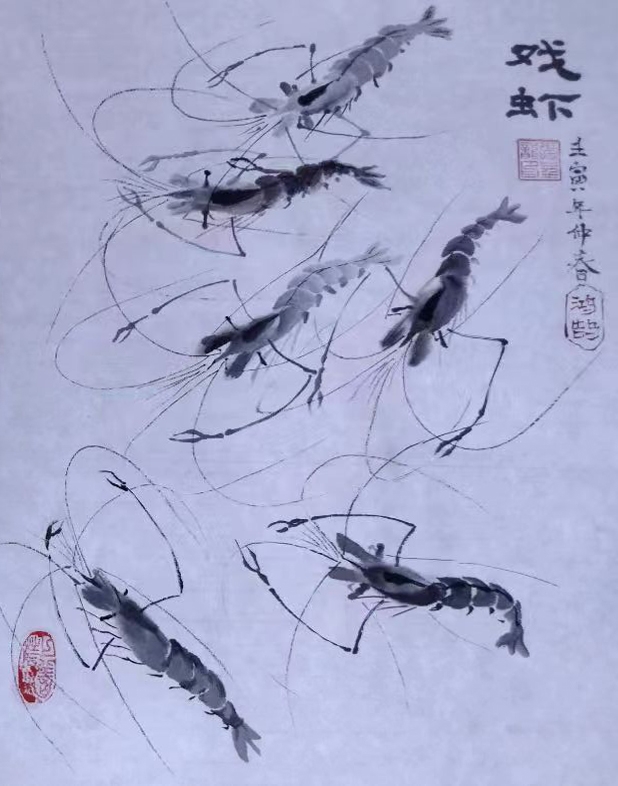 戏
虾
壬寅年仲春
鸿鹄